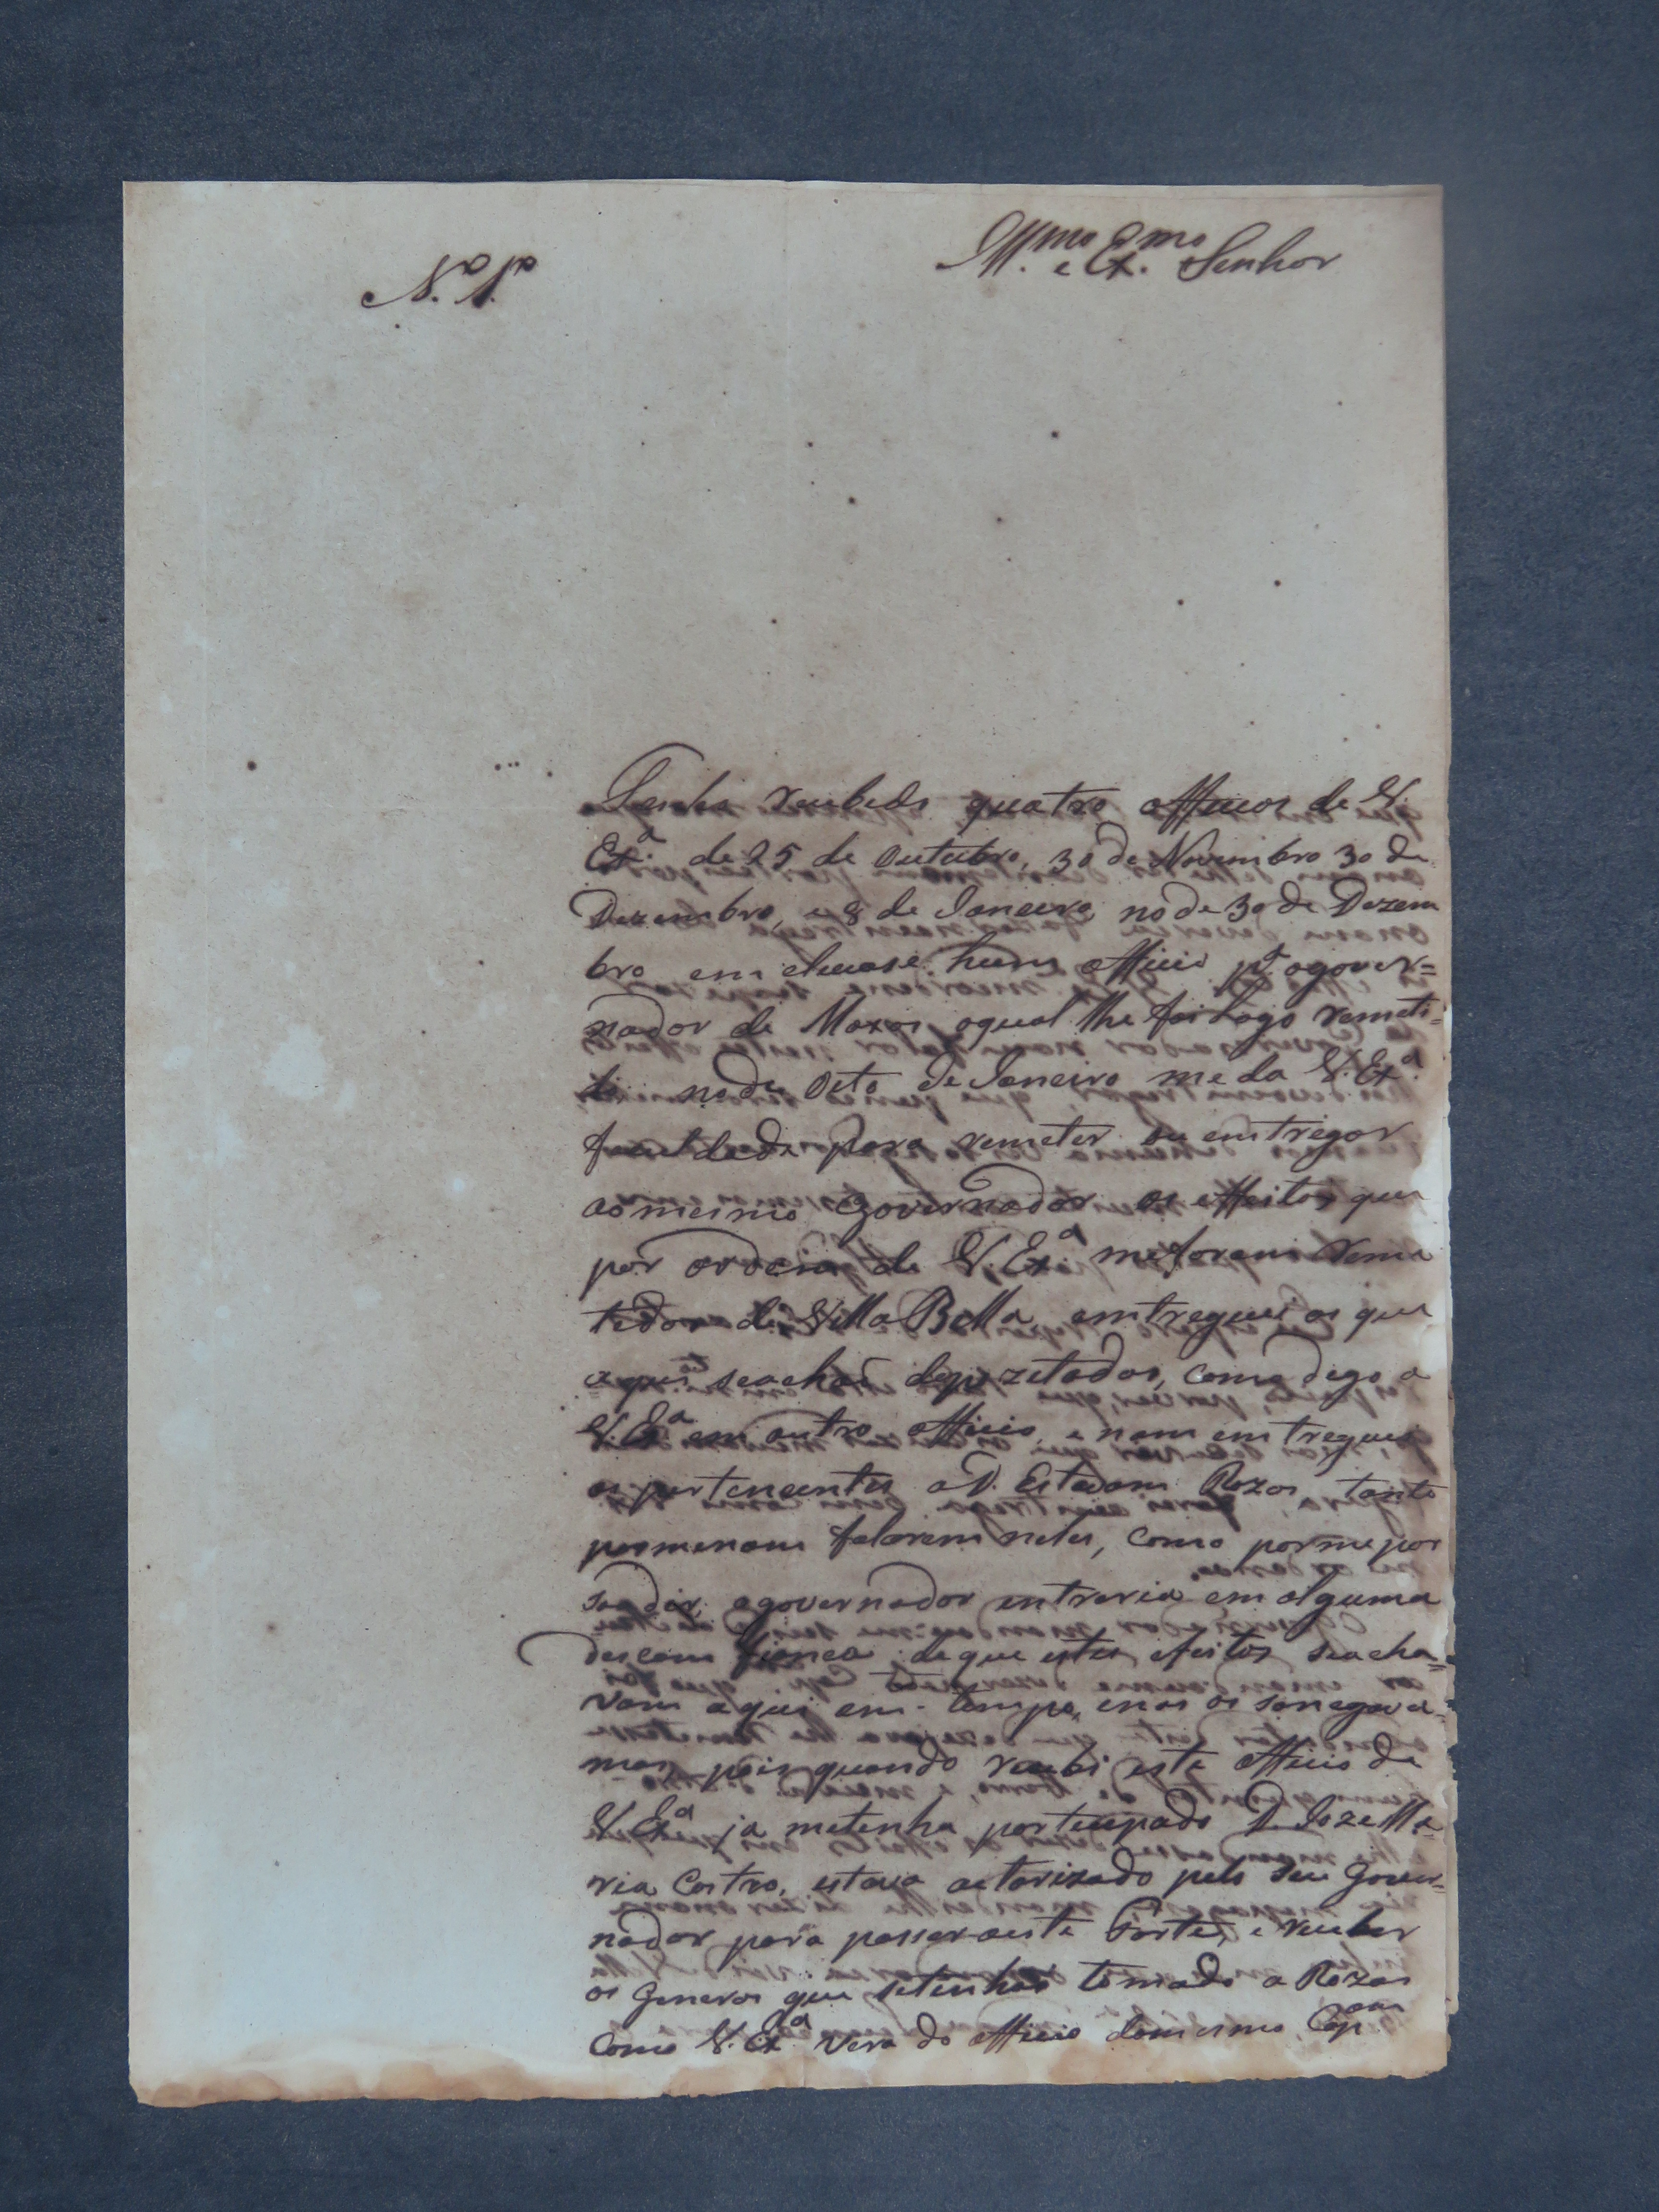 Ill.mo e Ex.mo Senhor
N.o 1.o
Tenho recebido quatro officios de V.
Ex.a de 25 de Outubro, 30 de Novembro 30 de
Dezembro, e 8 de Janeiro, no de 30 de Dezem
bro em clausé hum officio p.a ogover=
nador de Moxos oqual lhe foi Logo remeti=
do no de Oito de Janeiro me da V. Ex.a
facul dade para remeter ou emtregar
aomesmo Governador os effeitos que
por ordem de V. Ex.a meforam reme
tidos de Villa Bella, emtreguei os que
aqui seachaõ depozetados, como digo a
V. Ex.a em outro officio, e nam emtreguei
os pertencentes a D. Estevam Rozas, tanto
pormenam falarem neles, como porme por
soadir, ogovernador entraria em alguma
desconfiança deque estes efeitos seacha=
vam aqui em tempo, enos os sonegava=
mos, pois quando recebi este officio de
V. Ex.a ja metinha porteupado D. Joze Ma=
ria Castro, estava autorizado pelo seu Gover=
nador para passar aeste Forte, e receber
os Generos que setinhaõ tomado a Rozas
Como V. Ex.a vera do officio domesmo Cap.am